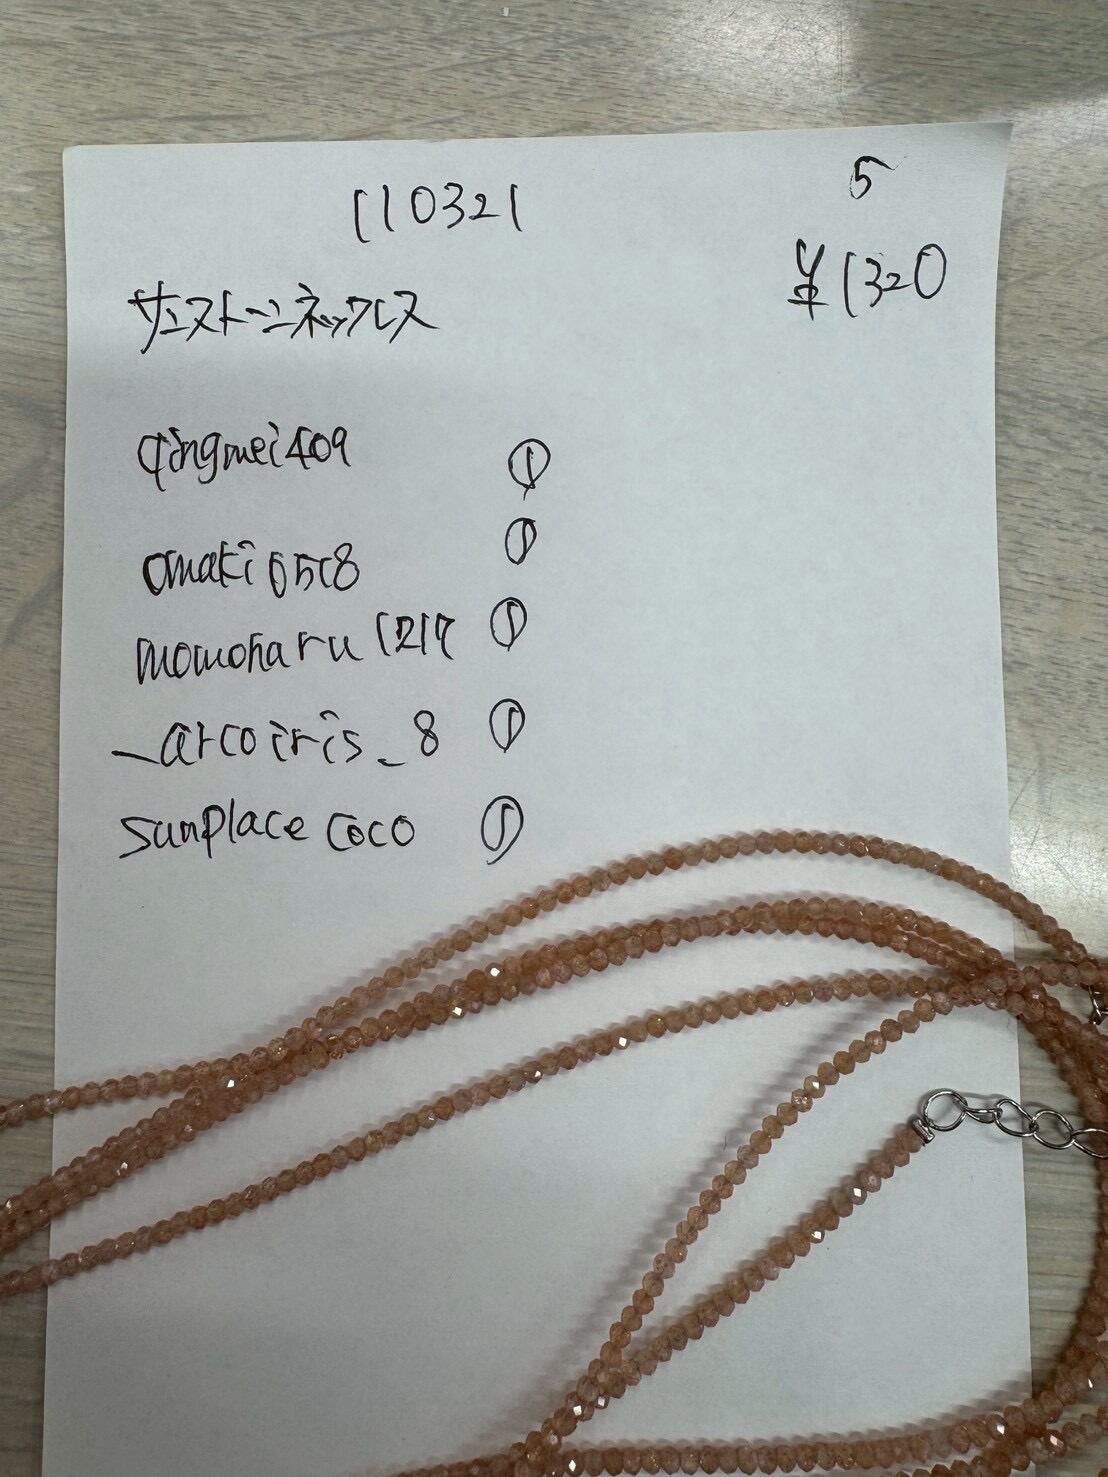 110321
5
¥1320
サンストーンネックレス
qingmei409 ①
omaki6518 ①
momoharu1217 ①
_arcoiris_8 ①
sunplace coco ①